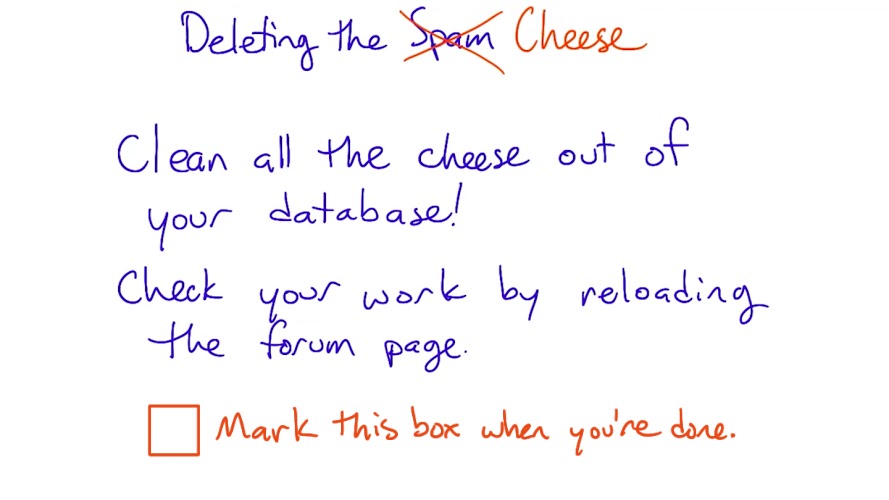 Deleting the Spam Cheese
Clean all the cheese out of
your database!
Check your work by reloading
the forum page.
Mark this box when you're done.